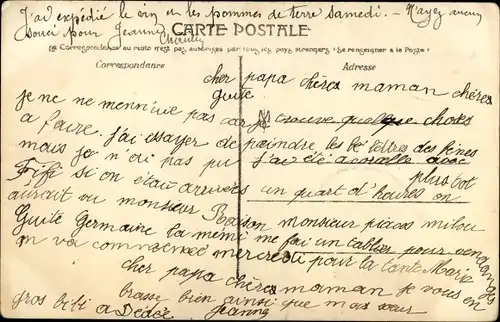 J'ai expédié le vin et les pommes de terre samedi. - N'ayez aucun
souci pour Jeanne
CARTE POSTALE
La Correspondance au recto n'est pas autorisée par tous les pays étrangers (Se renseigner à la Poste)
Correspondance Adresse
cher papa chère maman chère
guite
je ne mennuie pas car je trouve quelque choses
a faire. j'ai essayer de peindre les
mais je n'ai pas pu j'ai été a avec
Fifi si on était arrivées un quart d'heures plus tot on
aurait vu monsieur monsieur milou
Guite Germaine la memé me fai un tablier pour
on va commencée mercredi pour la tante Marie
cher papa chère maman je vous en
brasse bien ainsi que mas sœur
gros bibi a Dédée Jeanne